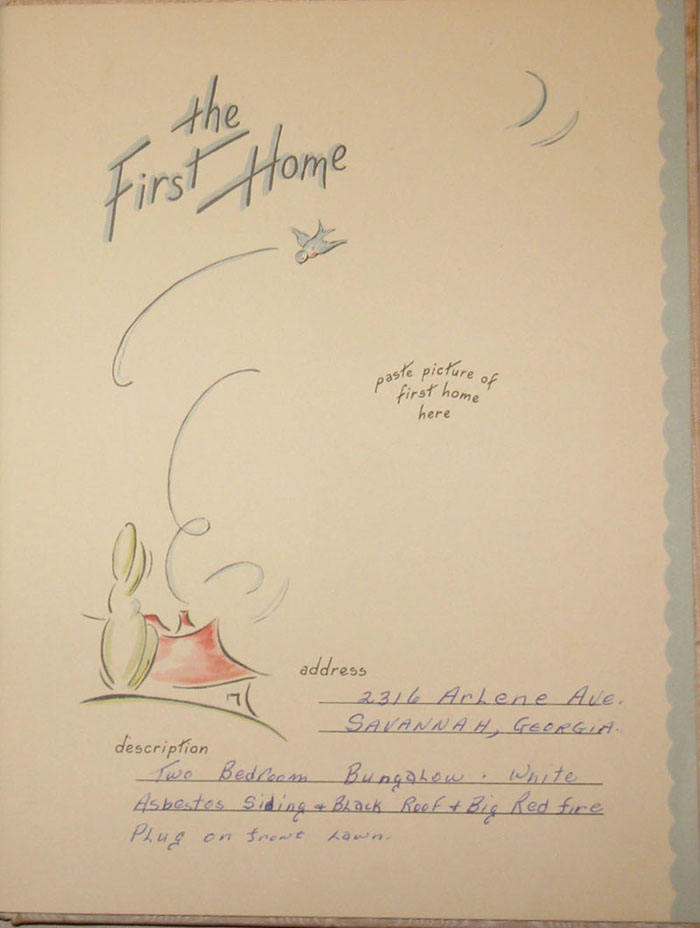 the
First Home
paste picture of
first home
here
address
2316 Arlene Ave.
SAVANNAH, GEORGIA.
description
Two Bedroom Bungalow. White
Asbestos Siding + Black Roof + Big Red fire
Plug on front Lawn.